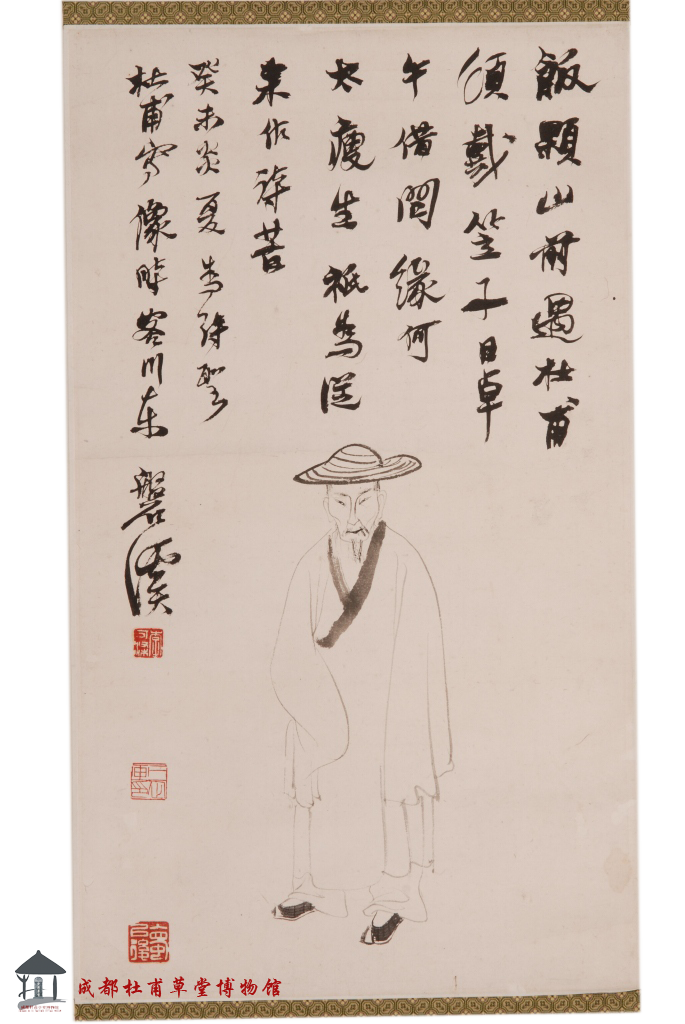 飯顆山前遇杜甫
頭戴笠子日卓
午借問緣何
太瘦生祇為從
來作詩苦
癸未炎夏為詩聖
杜甫寫像時客川東
磐溪
李可染
成都杜甫草堂博物馆